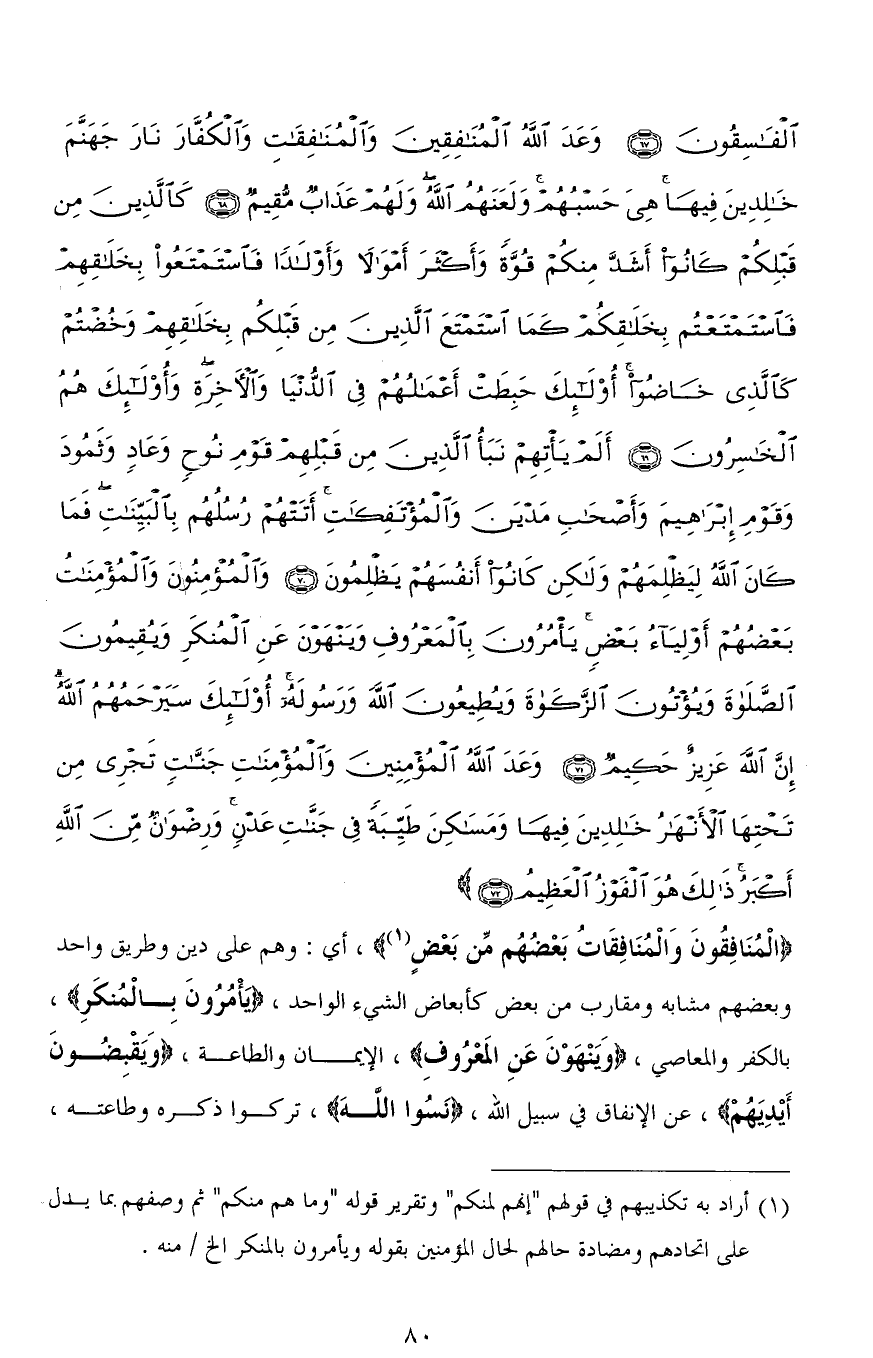 ٱلْفَـٰسِقُونَ ۝٦٧ وَعَدَ ٱللَّهُ ٱلْمُنَـٰفِقِينَ وَٱلْمُنَـٰفِقَـٰتِ وَٱلْكُفَّارَ نَارَ جَهَنَّمَ
خَـٰلِدِينَ فِيهَا ۚ هِىَ حَسْبُهُمْ ۚ وَلَعَنَهُمُ ٱللَّهُ ۖ وَلَهُمْ عَذَابٌ مُّقِيمٌ ۝٦٨ كَٱلَّذِينَ مِن
قَبْلِكُمْ كَانُوٓا۟ أَشَدَّ مِنكُمْ قُوَّةً وَأَكْثَرَ أَمْوَٰلًا وَأَوْلَـٰدًا فَٱسْتَمْتَعُوا۟ بِخَلَـٰقِهِمْ
فَٱسْتَمْتَعْتُم بِخَلَـٰقِكُمْ كَمَا ٱسْتَمْتَعَ ٱلَّذِينَ مِن قَبْلِكُم بِخَلَـٰقِهِمْ وَخُضْتُمْ
كَٱلَّذِى خَاضُوٓا۟ ۚ أُو۟لَـٰٓئِكَ حَبِطَتْ أَعْمَـٰلُهُمْ فِى ٱلدُّنْيَا وَٱلْـَٔاخِرَةِ ۖ وَأُو۟لَـٰٓئِكَ هُمُ
ٱلْخَـٰسِرُونَ ۝٦٩ أَلَمْ يَأْتِهِمْ نَبَأُ ٱلَّذِينَ مِن قَبْلِهِمْ قَوْمِ نُوحٍ وَعَادٍ وَثَمُودَ
وَقَوْمِ إِبْرَٰهِيمَ وَأَصْحَـٰبِ مَدْيَنَ وَٱلْمُؤْتَفِكَـٰتِ ۚ أَتَتْهُمْ رُسُلُهُم بِٱلْبَيِّنَـٰتِ ۖ فَمَا
كَانَ ٱللَّهُ لِيَظْلِمَهُمْ وَلَـٰكِن كَانُوٓا۟ أَنفُسَهُمْ يَظْلِمُونَ ۝٧٠ وَٱلْمُؤْمِنُونَ وَٱلْمُؤْمِنَـٰتُ
بَعْضُهُمْ أَوْلِيَآءُ بَعْضٍ ۚ يَأْمُرُونَ بِٱلْمَعْرُوفِ وَيَنْهَوْنَ عَنِ ٱلْمُنكَرِ وَيُقِيمُونَ
ٱلصَّلَوٰةَ وَيُؤْتُونَ ٱلزَّكَوٰةَ وَيُطِيعُونَ ٱللَّهَ وَرَسُولَهُۥٓ ۚ أُو۟لَـٰٓئِكَ سَيَرْحَمُهُمُ ٱللَّهُ ۗ
إِنَّ ٱللَّهَ عَزِيزٌ حَكِيمٌ ۝٧١ وَعَدَ ٱللَّهُ ٱلْمُؤْمِنِينَ وَٱلْمُؤْمِنَـٰتِ جَنَّـٰتٍ تَجْرِى مِن
تَحْتِهَا ٱلْأَنْهَـٰرُ خَـٰلِدِينَ فِيهَا وَمَسَـٰكِنَ طَيِّبَةً فِى جَنَّـٰتِ عَدْنٍ ۚ وَرِضْوَٰنٌ مِّنَ ٱللَّهِ
أَكْبَرُ ۚ ذَٰلِكَ هُوَ ٱلْفَوْزُ ٱلْعَظِيمُ ۝٧٢ ﴾
﴿الْمُنَافِقُونَ وَالْمُنَافِقَاتُ بَعْضُهُم مِّن بَعْضٍ(١)﴾ ، أي : وهم على دين وطريق واحد
وبعضهم مشابه ومقارب من بعض كأبعاض الشيء الواحد ، ﴿يَأْمُرُونَ بِالْمُنكَرِ﴾ ،
بالكفر والمعاصي ، ﴿وَيَنْهَوْنَ عَنِ الْمَعْرُوفِ﴾ ، الإيمان والطاعة ، ﴿وَيَقْبِضُونَ
أَيْدِيَهُمْ﴾ ، عن الإنفاق في سبيل الله ، ﴿نَسُوا اللَّهَ﴾ ، تركوا ذكره وطاعته ،
(١) أراد به تكذيبهم في قولهم "إنهم لمنكم" وتقرير قوله "وما هم منكم" ثم وصفهم بما يدل
على اتحادهم ومضادة حالهم لحال المؤمنين بقوله ويأمرون بالمنكر الخ / منه .
٨٠